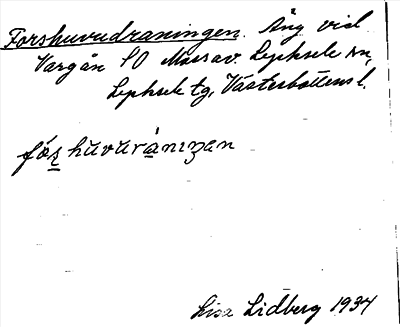 Forshuvudraningen. Äng vid
Vargån SO Lycksele sn,
Lycksele tg, Västerbottens l.
fo̱s huvuránıŋan
Lisa Lidberg 1934